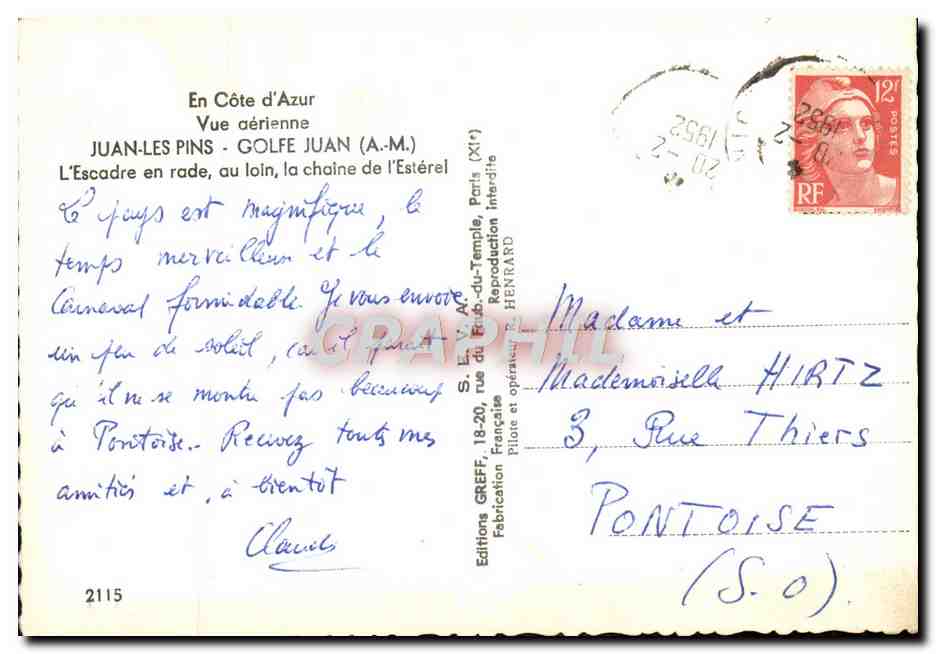 En Côte d'Azur
Vue aérienne
JUAN-LES PINS - GOLFE JUAN (A.-M.)
L'Escadre en rade, au loin, la chaine de l'Estérel
Le pays est magnifique, le
temps merveilleux et le
Carnaval formidable. Je vous envoie
un peu de soleil, car il parait
qu'il ne se montre pas beaucoup
à Pontoise. Recevez toutes mes
amitiés et, à bientôt
Claude
2115
Editions GREFF, 18-20, rue du Faub.-du-Temple, Paris (XIe)
S. E. V. A.
Fabrication Française
Reproduction interdite
Pilote et opérateur R. HENRARD
CPAPHIL
20 -2
1952
20 -2
1952
12F
POSTES
RF
Madame et
Mademoiselle HIRTZ
3, Rue Thiers
PONTOISE
(S.O).